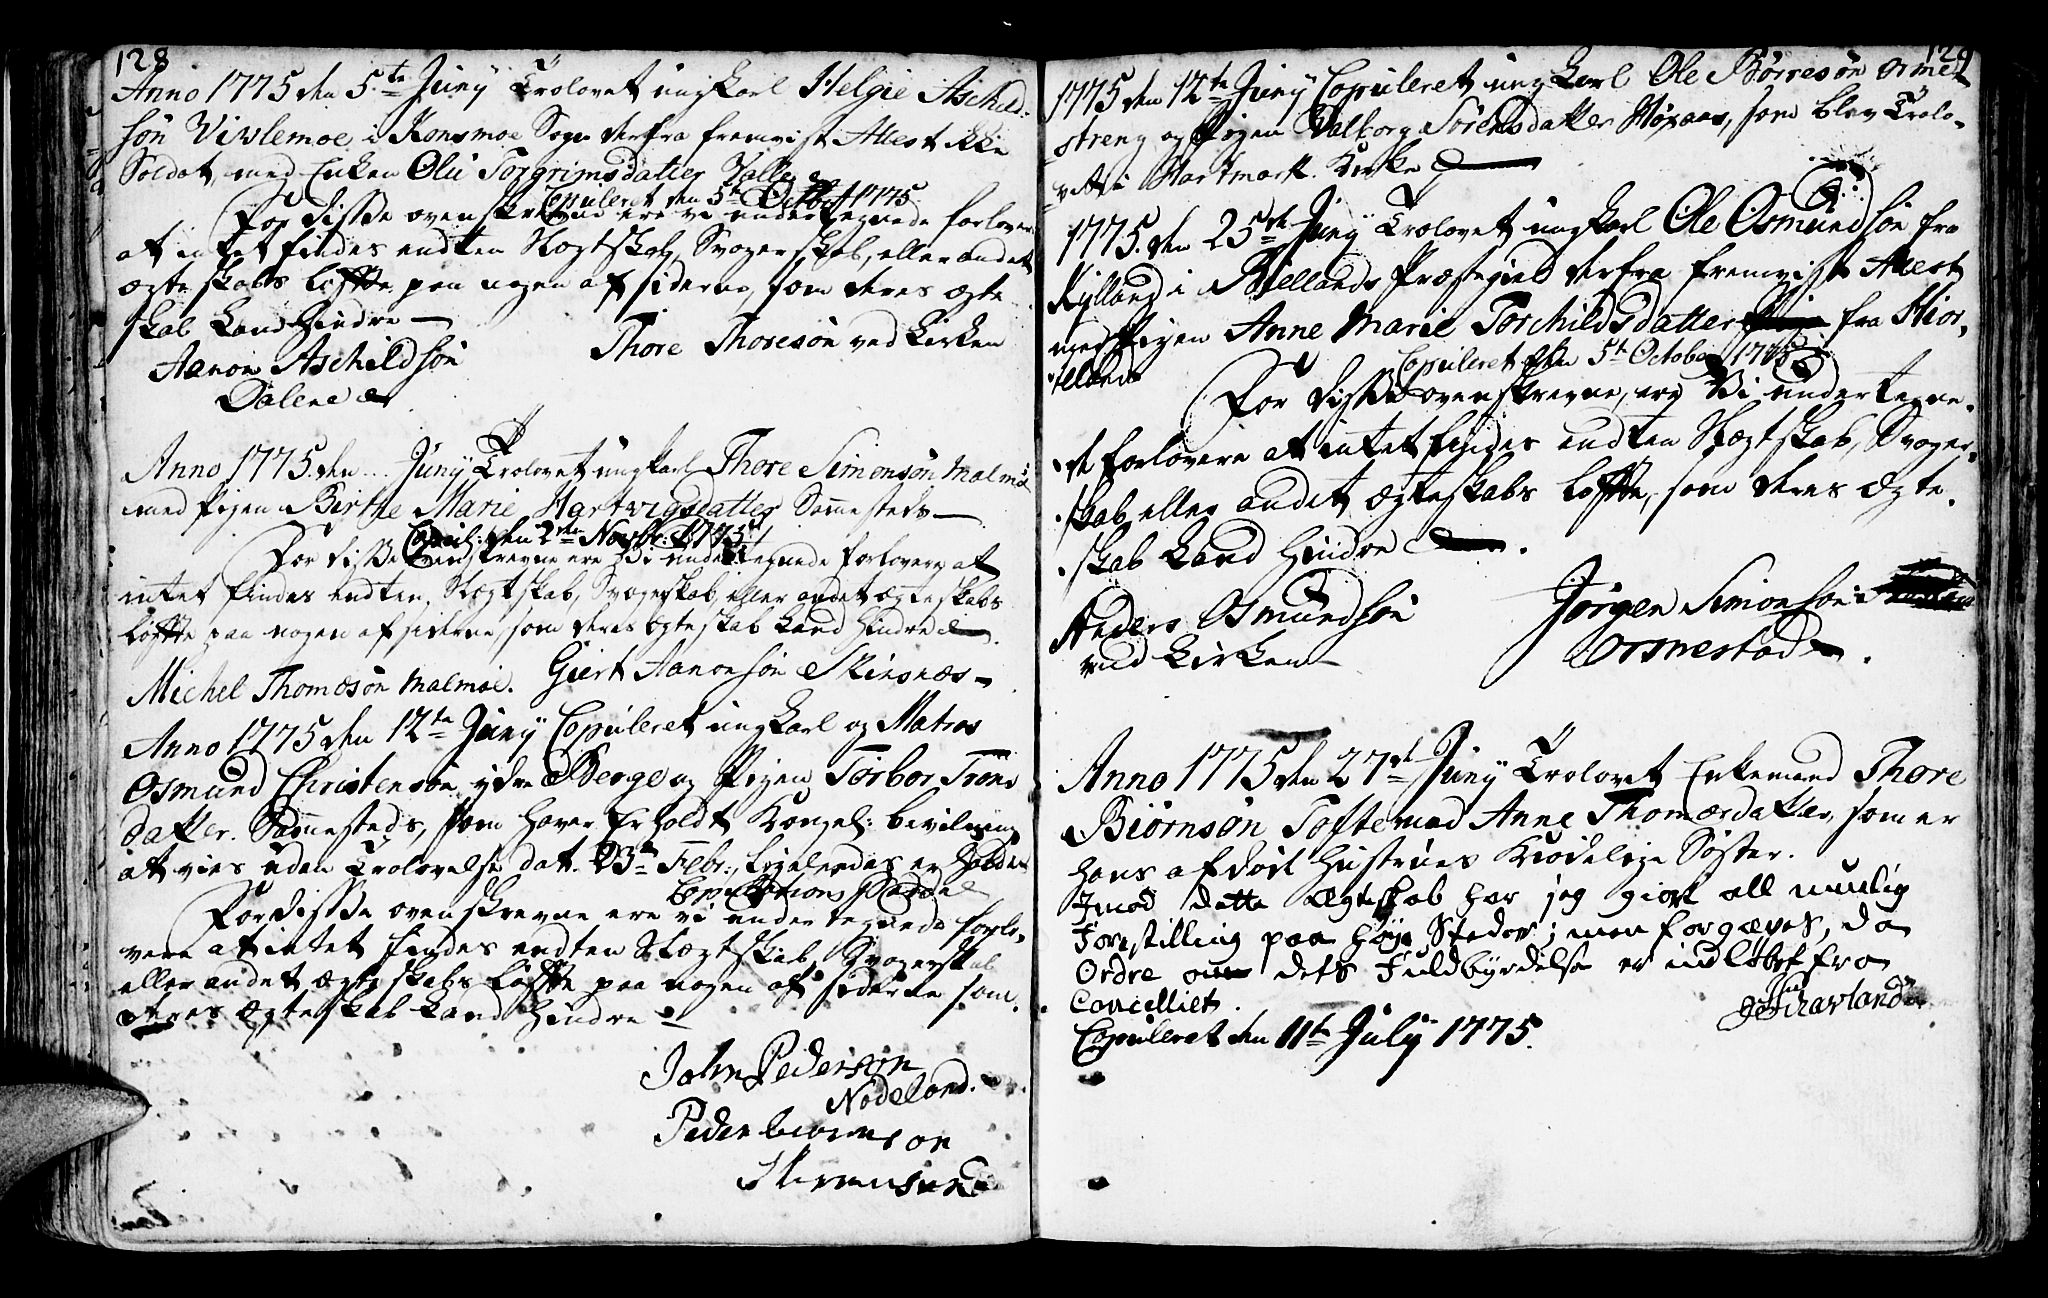 128
Anno 1775 den 5te Juny Trolovet ungkarl Helgie Aschild-
søn Vivlemoe i Konsmoe Sogn derfra fremvist Attest ikke
Soldat, med Enken Olu Torgrimsdatter Valle
Copuleret den 5te Octobr 1775
For disse ovenskrevne ere vi undertegnede forlover
at intet findes endten Slegtskab, Svogerskab, eller andet
egteskabs løffte paa nogen af siderne, som deres egte
skab kand Hindre
Aanon Aschildsøn
Thore Thoresøn ved kirken
Dalene
Anno 1775 den ... Juny Trolovet ungkarl Thore Simonsøn Malmøe
med Pigen Birthe Marie Hartvigsdatter Sammesteds
Copul: den 2den Novbr: 1775
For disse ovenskrevne ere Vi undertegnede forlovere at
intet findes endten Slegtskab, Svogerskab, eller andet egteskabs
løffte paa nogen af siderne, som deres egteskab kand Hindre
Michel Thomæsøn Malmøe. Giert Aanonsøn Skinsnæs
Anno 1775 den 12te Juny Copuleret ungkarl og Matros
Osmund Christensøn ydre Berge og Pigen Torbor Trons
datter. Sammesteds, som haver Erholdt Kongel: bevilning
at vies uden Trolovelse dat. 23de Febr:, ligeledes er
Copulations
For disse ovenskrevne ere vi undertegnede forlo-
vere at intet findes endten Slegtskab, Svogerskab
eller andet egteskabs løffte paa nogen af siderne som
deres egteskab kand Hindre
John Pedersøn
Nodeland.
Peder
129
1775 den 12te Juny Copuleret ungkarl Ole Børresøn Orme-
streng og Pigen Valborg Sørensdatter Høxaas, som blev Trolo-
vet i Hartmark Kirke
1775. den 25de Juny Trolovet ungkarl Ole Osmundsøn fra
Kylland i Biellands Præstegield derfra fremvist Attest
med Pigen Anne Marie Torchildsdatter fra Hior-
Copuleret den 5te October 1775
For disse ovenskrevne, ere Vi undertegne-
de forlovere at intet findes endten Slegtskab, Svoger-
skab, eller andet egteskabs løffte, som deres egte-
skab kand Hindre
Anders Osmundsøn
ved kirken
Jørgen Simonsøn
Ormestad
Anno 1775 den 27de Juny Trolovet Enkemand Thore
Biørnsøn Tofte med Anne Thomædatter, som er
hans afdøde Hustrues Kiødelige Søster.
Imod dette Ægteskab har jeg giort all muulig
Forestilling paa høye Steder; men forgæves, da
Ordre om dets Fuldbyrdelse er indløbet fra
Cancelliet.
Copuleret den 11te July 1775.